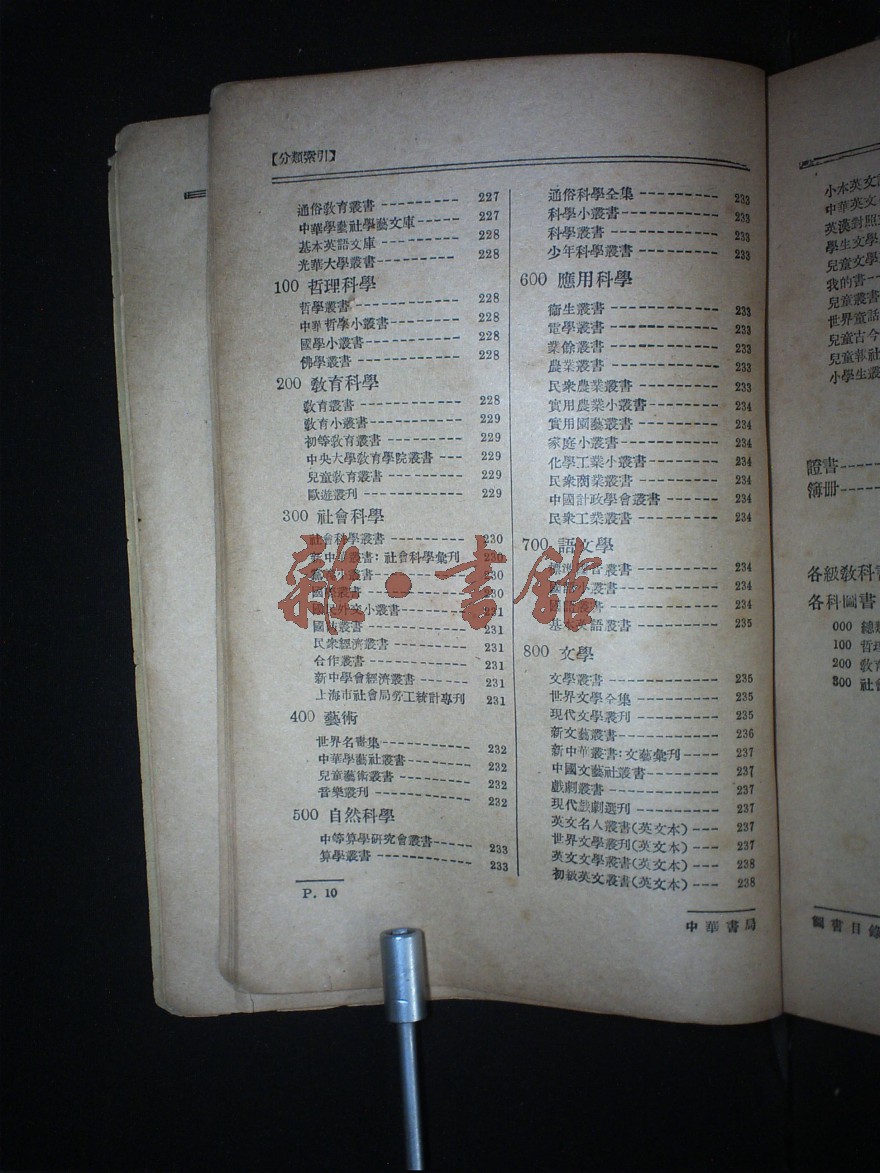 【分類索引】
通俗敎育叢書 227
中華學藝社學藝文庫 227
基本英語文庫 228
光華大學叢書 228
100 哲理科學
哲學叢書 228
中華哲學小叢書 228
國學小叢書 228
佛學叢書 228
200 敎育科學
敎育叢書 228
敎育小叢書 229
初等敎育叢書 229
中央大學敎育學院叢書 229
兒童敎育叢書 229
歐遊叢刊 229
300 社會科學
社會科學叢書 230
新中華叢書：社會科學彙刊 230
叢書 230
國際叢書 230
國民外交小叢書 231
國防叢書 231
民衆經濟叢書 231
合作叢書 231
新中學會經濟叢書 231
上海市社會局勞工統計專刊 231
400 藝術
世界名畫集 232
中華學藝社叢書 232
兒童藝術叢書 232
音樂叢刊 232
500 自然科學
中等算學硏究會叢書 233
算學叢書 233
P. 10
通俗科學全集 233
科學小叢書 233
科學叢書 233
少年科學叢書 233
600 應用科學
衞生叢書 233
電學叢書 233
業餘叢書 233
農業叢書 233
民衆農業叢書 233
實用農業小叢書 234
實用園藝叢書 234
家庭小叢書 234
化學工業小叢書 234
民衆商業叢書 234
中國計政學會叢書 234
民衆工業叢書 234
700 語文學
叢書 234
國語小叢書 234
國語叢書 234
基本英語叢書 235
800 文學
文學叢書 235
世界文學全集 235
現代文學叢刊 235
新文藝叢書 236
新中華叢書：文藝彙刊 237
中國文藝社叢書 237
戲劇叢書 237
現代戲劇選刊 237
英文名人叢書（英文本） 237
世界文學叢刊（英文本） 237
英文文學叢書（英文本） 238
初級英文叢書（英文本） 238
中華書局
雜·書館
小本英文
中華英文
英漢對照
學生文學
兒童文學
我的書
兒童叢書
世界童話
兒童古今
兒童報社
小學生叢
證書
簿册
各級敎科書
各科圖書
000 總類
100 哲理
200 敎育
300 社會
圖書目錄